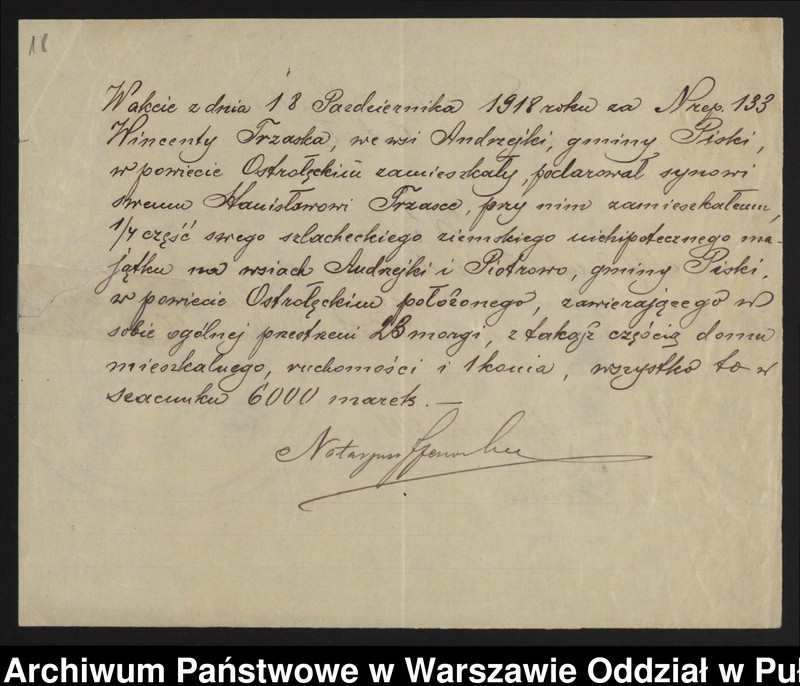 18
W akcie z dnia 18 Pazdziernika 1918 roku za N rep. 133
Wincenty Trzaska, we wsi Andrzejki, gminy Piski,
w powiecie Ostrołęckim zamieszkały, podarował synowi
swemu Stanisłowowi Trzasce, przy nim zamieszkałemu,
1/4 część swego szlacheckiego ziemskiego niehipotecznego ma-
jątku na wsiach Andrzejki i Piotrowo, gminy Piski,
w powiecie Ostrołęckim położonego, zawierającego w
sobie ogólnej przestrzeni 23 morgi, z takąż częścią domu
mieszkalnego, ruchomości i 1 konia, wszystko to w
szacunku 6000 marek. —
Notaryusz
Archiwum Państwowe w Warszawie Oddział w Puł